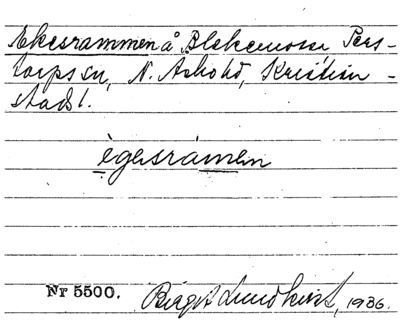 Ekesrammen å Blekemossa Pers-
torps sn, N. Åsbo hd, Kristian-
stads l.
ègesrámen
Nr 5500.
Birgit Lundkvist, 1936.